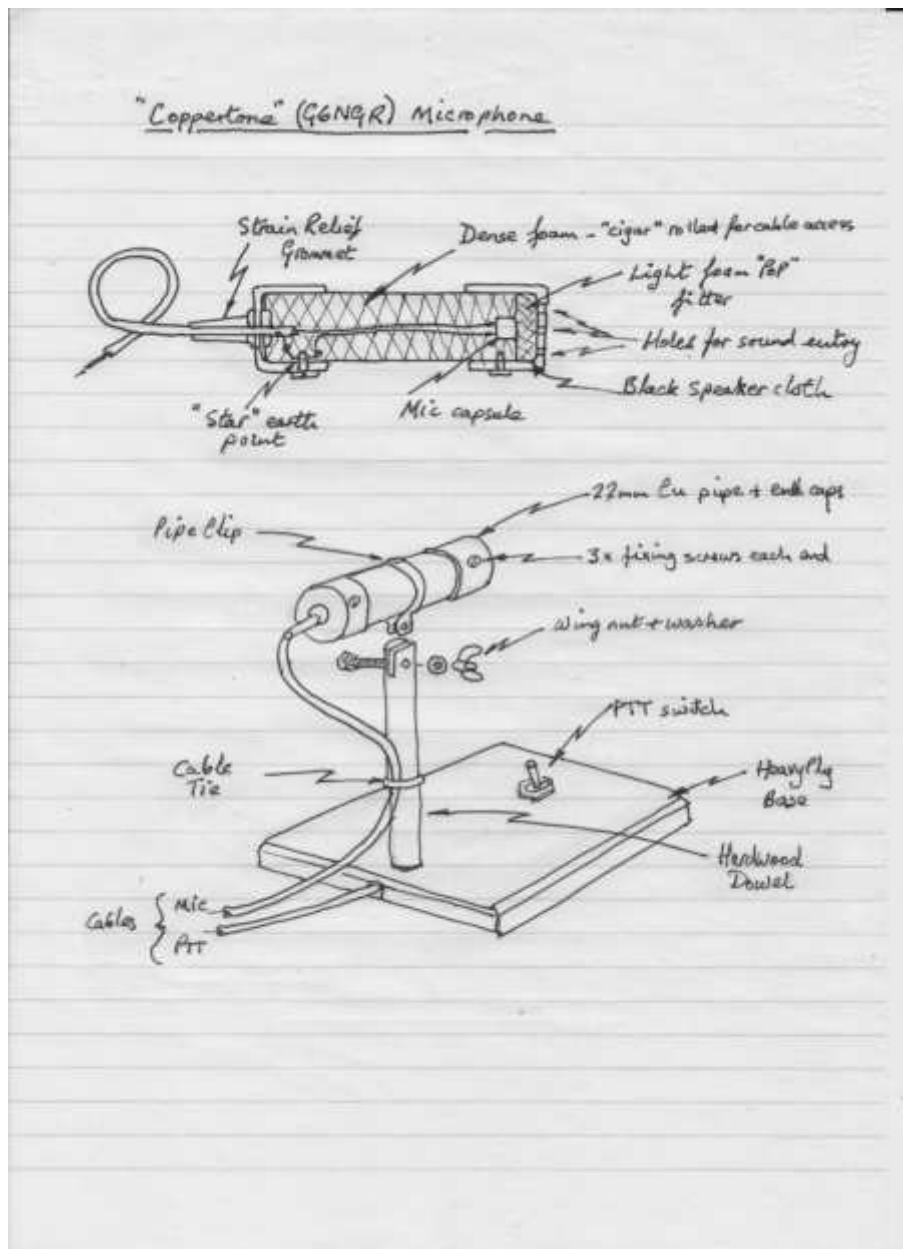 "Coppertone" (G6NGR) Microphone
Strain Relief
Grommet
Dense foam - "cigar" rolled for cable access
Light foam "PoP"
filter
Holes for sound entry
Black speaker cloth
Mic capsule
"Star" earth
point
22mm Cu pipe + end caps
Pipe Clip
3x fixing screws each end
Wing nut + washer
PTT switch
Cable
Tie
Heavy Ply
Base
Hardwood
Dowel
Cables { Mic
PTT